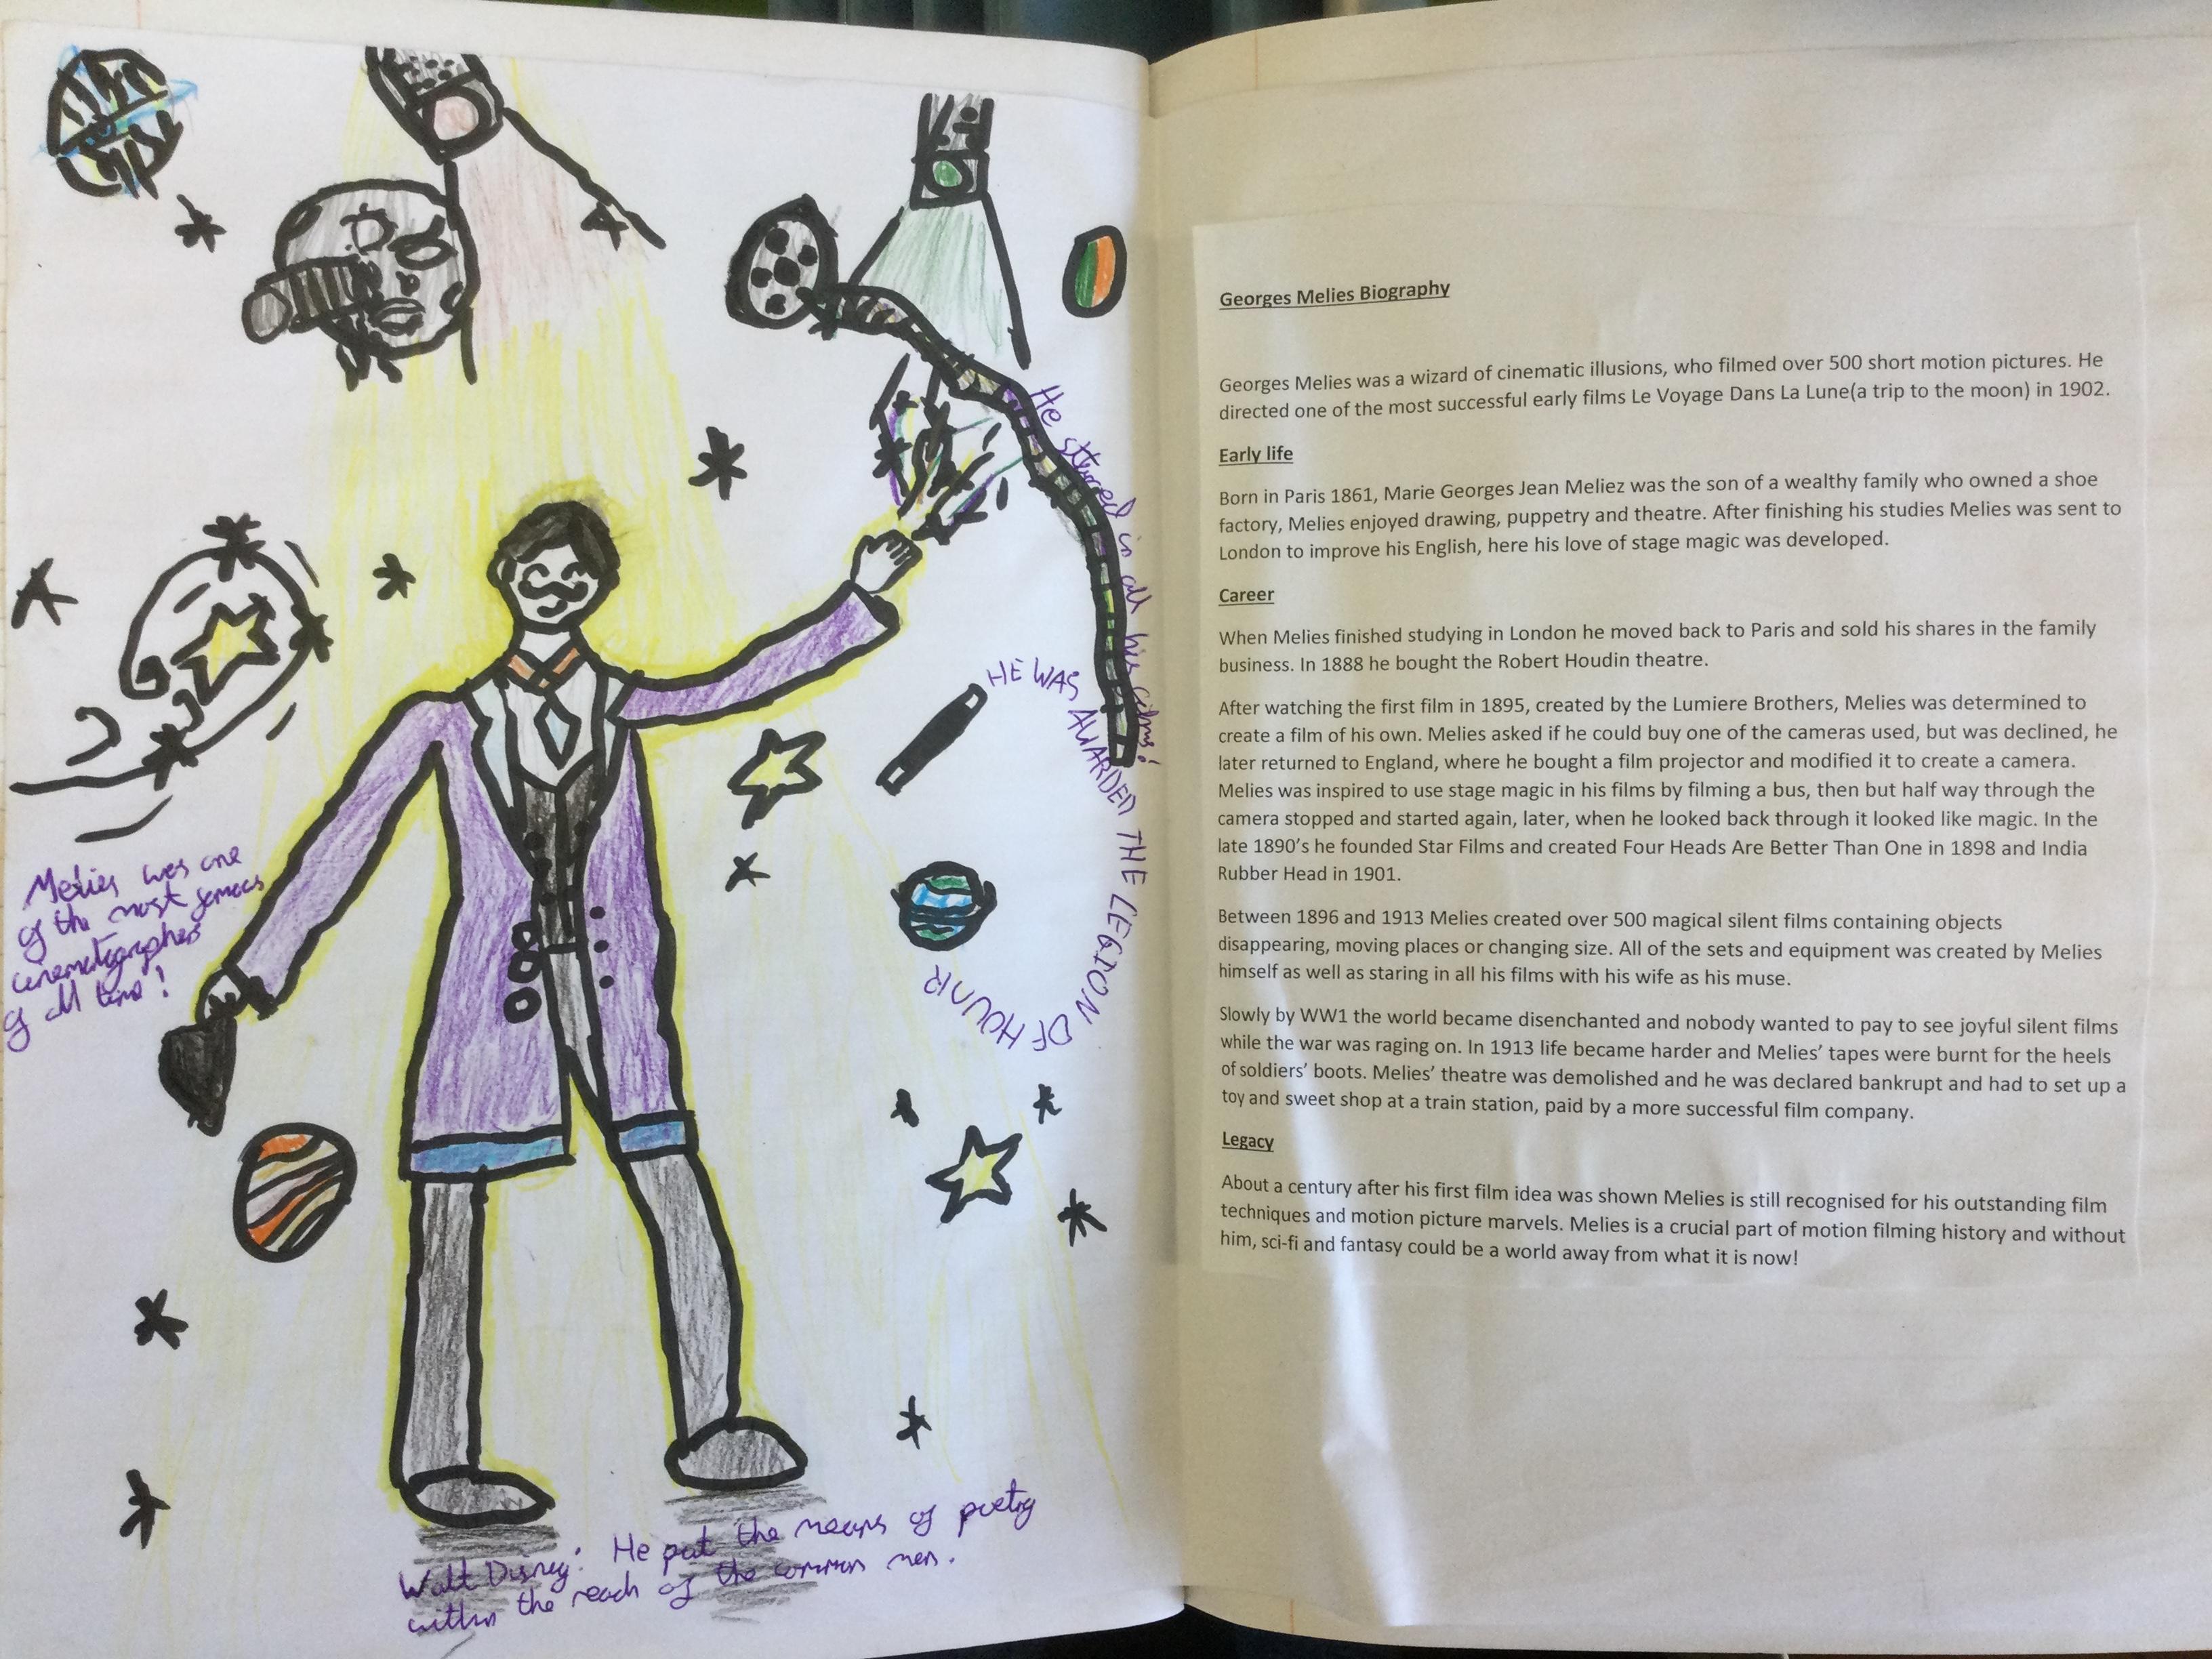 He sterred in all his films!
HE WAS AWARDED THE LEGION OF HOUNR
Melies was one
of the most famous
cinematographers
of all time!
Walt Disney: He put the means of poetry
within the reach of the common men.
Georges Melies Biography
Georges Melies was a wizard of cinematic illusions, who filmed over 500 short motion pictures. He
directed one of the most successful early films Le Voyage Dans La Lune(a trip to the moon) in 1902.
Early life
Born in Paris 1861, Marie Georges Jean Meliez was the son of a wealthy family who owned a shoe
factory, Melies enjoyed drawing, puppetry and theatre. After finishing his studies Melies was sent to
London to improve his English, here his love of stage magic was developed.
Career
When Melies finished studying in London he moved back to Paris and sold his shares in the family
business. In 1888 he bought the Robert Houdin theatre.
After watching the first film in 1895, created by the Lumiere Brothers, Melies was determined to
create a film of his own. Melies asked if he could buy one of the cameras used, but was declined, he
later returned to England, where he bought a film projector and modified it to create a camera.
Melies was inspired to use stage magic in his films by filming a bus, then but half way through the
camera stopped and started again, later, when he looked back through it looked like magic. In the
late 1890's he founded Star Films and created Four Heads Are Better Than One in 1898 and India
Rubber Head in 1901.
Between 1896 and 1913 Melies created over 500 magical silent films containing objects
disappearing, moving places or changing size. All of the sets and equipment was created by Melies
himself as well as staring in all his films with his wife as his muse.
Slowly by WW1 the world became disenchanted and nobody wanted to pay to see joyful silent films
while the war was raging on. In 1913 life became harder and Melies' tapes were burnt for the heels
of soldiers' boots. Melies' theatre was demolished and he was declared bankrupt and had to set up a
toy and sweet shop at a train station, paid by a more successful film company.
Legacy
About a century after his first film idea was shown Melies is still recognised for his outstanding film
techniques and motion picture marvels. Melies is a crucial part of motion filming history and without
him, sci-fi and fantasy could be a world away from what it is now!